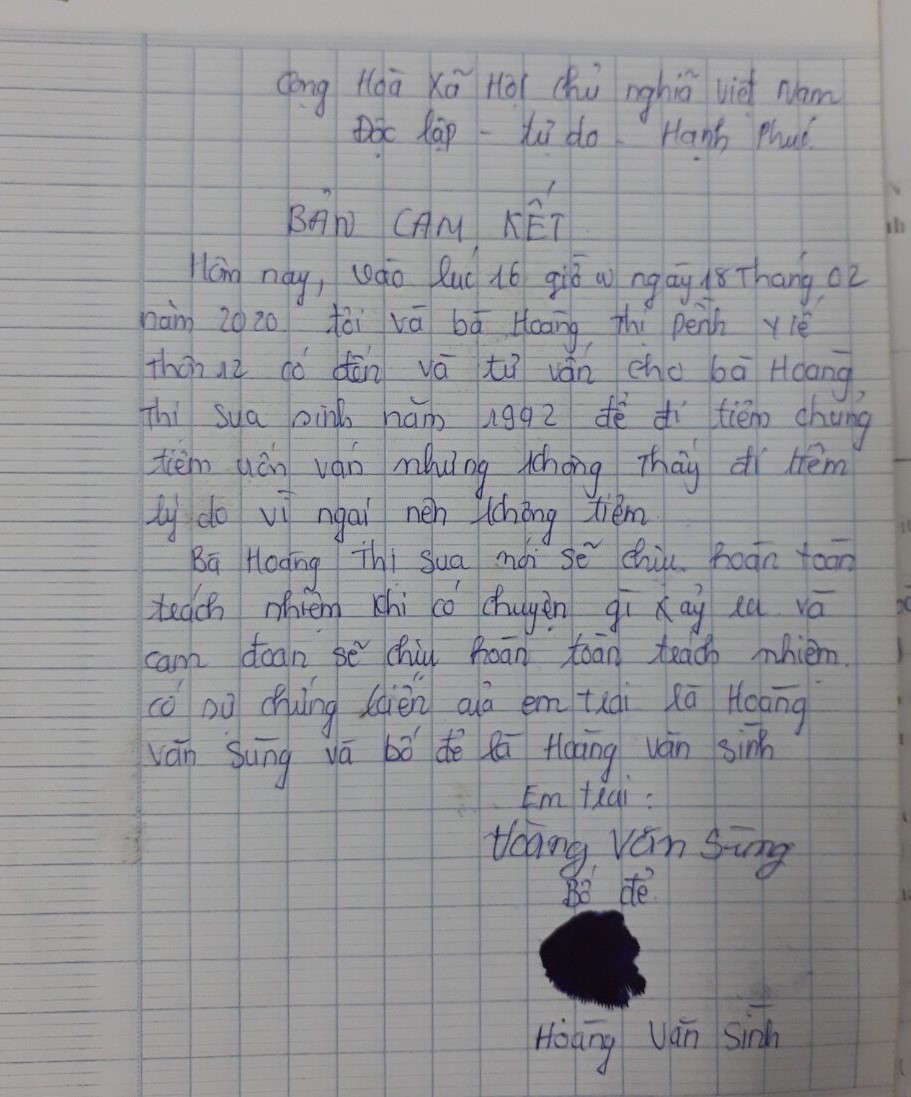 Cộng Hoà Xã Hội chủ nghĩã việt Nam
Độc lập - tự do - Hạnh phúc.
BẢN CAM KẾT
Hôm nay, vào lúc 16 giờ ngày 18 Tháng 02
năm 2020 tôi và bà Hoàng Thị pềnh y tế
thôn 12 có đến và tư vấn cho bà Hoàng
Thị sua sinh năm 1992 để đi tiêm chủng
tiêm uốn ván nhưng không Thấy đi tiêm
lý do vì ngại nên không tiêm.
Bà Hoàng Thị sua nói sẽ chịu hoàn toàn
trách nhiễm khi có chuyện gì xảy ra và
cam đoan sẽ chịu hoàn toàn trách nhiệm.
có sự chứng kiến của em trai là Hoàng
văn Sùng và bố đẻ là Hoàng văn sình
Em trai :
Hoàng Văn Sùng
Bố đẻ
Hoàng Văn Sình